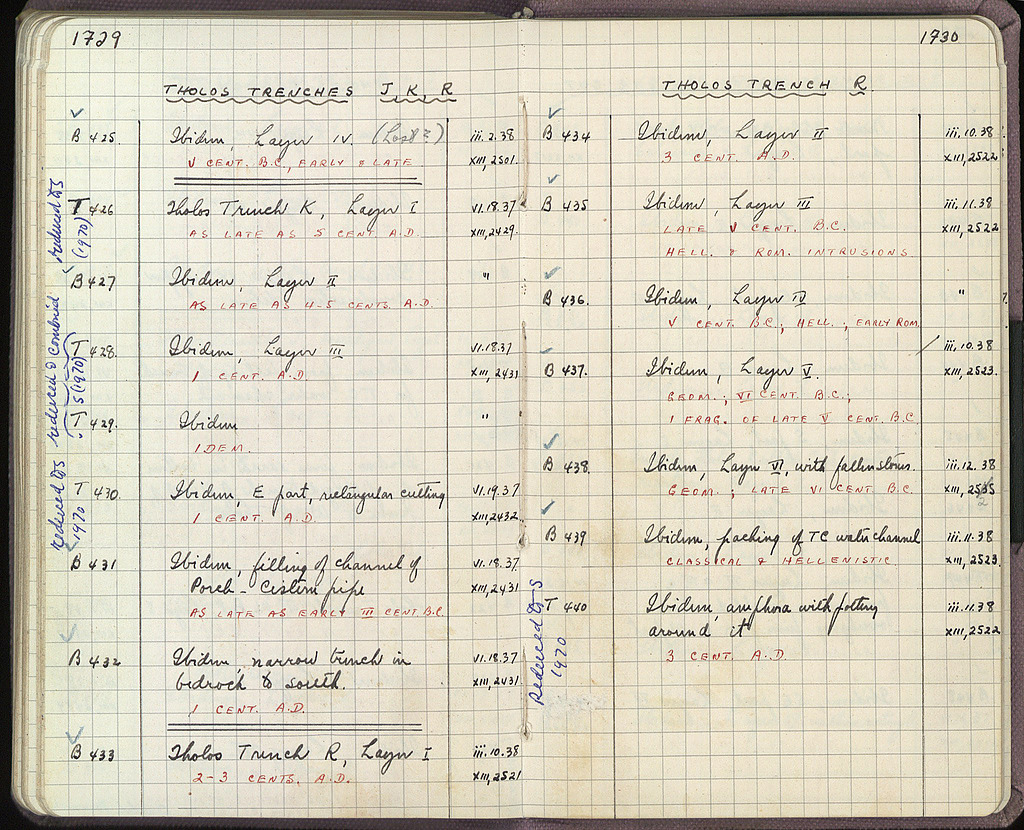 1729
THOLOS TRENCHES J, K, R
B 425. Ibidem, Layer IV. (Lost?) iii.2.38
V CENT. B.C., EARLY & LATE XIII, 2501.
T 426 Tholos Trench K, Layer I VI.18.37
AS LATE AS 5 CENT. A.D. XIII, 2429.
reduced to S
(1970)
B 427 Ibidem, Layer II "
AS LATE AS 4-5 CENTS. A.D.
T 428. Ibidem, Layer III VI.18.37
1 CENT. A.D. XIII, 2431
reduced & combined
S (1970)
T 429. Ibidem "
IDEM.
T 430. Ibidem, E part, rectangular cutting VI.19.37
1 CENT. A.D. XIII, 2432.
reduced to S
1970
B 431 Ibidem, filling of channel of VI.18.37
Porch-Cistern pipe XIII, 2431
AS LATE AS EARLY III CENT B.C.
B 432 Ibidem, narrow trench in VI.18.37
bedrock to south. XIII, 2431
1 CENT. A.D.
B 433 Tholos Trench R, Layer I iii.10.38
2-3 CENTS. A.D. XIII, 2521
1730
THOLOS TRENCH R.
B 434 Ibidem, Layer II iii.10.38
3 CENT. A.D. XIII, 2522
B 435 Ibidem, Layer III iii.11.38
LATE V CENT. B.C. XIII, 2522
HELL. & ROM. INTRUSIONS
B 436. Ibidem, Layer IV "
V CENT. B.C.; HELL.; EARLY ROM.
iii.10.38
B 437. Ibidem, Layer V. XIII, 2523.
GEOM.; VI CENT. B.C.;
1 FRAG. OF LATE V CENT. B.C.
B 438. Ibidem, Layer VI, with fallen stones. iii.12.38
GEOM.; LATE VI CENT. B.C. XIII, 2535
2
B 439 Ibidem, packing of TC water channel iii.11.38
CLASSICAL & HELLENISTIC. XIII, 2523
T 440 Ibidem, amphora with pottery iii.11.38
around it XIII, 2522
3 CENT. A.D.
Reduced to S
1970